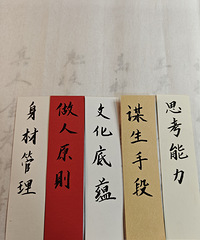 思考能力
谋生手段
文化底蕴
做人原则
身材管理